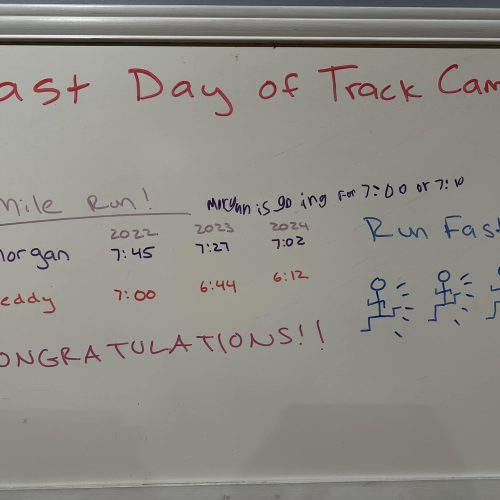 ast Day of Track Cam
Mile Run!
Morgan is going for 7:00 or 7:10
2022 2023 2024
Morgan 7:45 7:27 7:02
eddy 7:00 6:44 6:12
Run Fast
ONGRATULATIONS!!